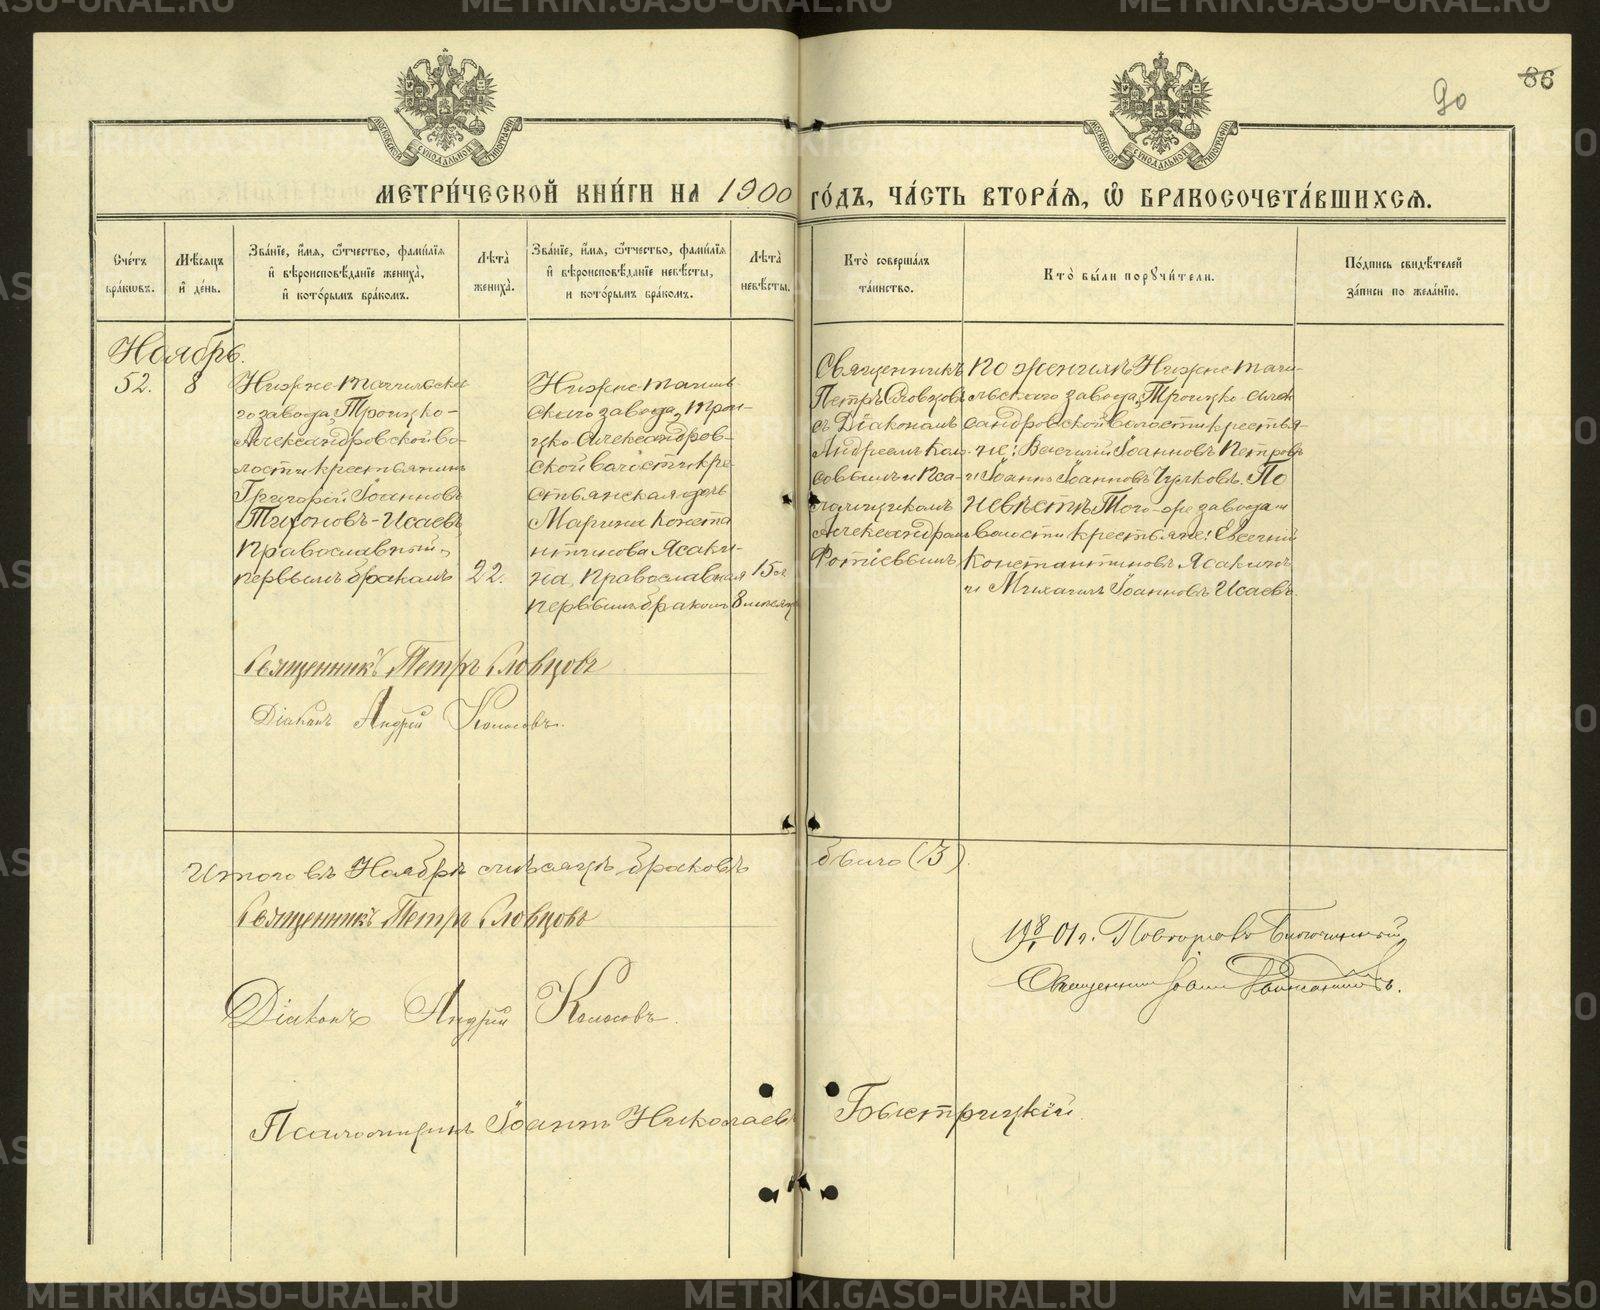 86
90
МЕТРИ́ЧЕСКОЙ КНИ́ГИ НА 1900 ГО́ДЪ, ЧА́СТЬ ВТОРА́Я, Ѿ БРАКОСОЧЕТА́ВШИХСЯ.
Сче́тъ бра́кωвъ.
Мѣ́сяцъ и҆ де́нь.
Зва́нїе, и҆́мя, ѻ҆́тчество, фами́лїя и҆ вѣроисповѣ́данїе жениха̀, и҆ кото́рымъ бра́комъ.
Лѣ́та жениха̀.
Зва́нїе, и҆́мя, ѻ҆́тчество, фами́лїя и҆ вѣроисповѣ́данїе невѣ́сты, и кото́рымъ бра́комъ.
Лѣ́та невѣ́сты.
Кто̀ соверша́лъ та́инство.
Кто̀ бы́ли порꙋчи́тели.
По́дпись свидѣ́телей за́писи по жела́нїю.
Ноябрь.
52.
8
Нижне-тагильска-
го завода, Троицко-
Александровской во-
лости крестьянинъ
Григорій Іоанновъ
Тихоновъ-Исаевъ
православный,
первымъ бракомъ
22.
Нижне-тагиль
скаго завода, Трои-
цко-Александров-
ской волости кре-
стьянская дочь
Марина Конста
нтинова Ясаки-
на, православная
первымъ бракомъ
15 л
8 месяц
Священникъ
Петръ Словцовъ
съ Діакономъ
Андреемъ Коло-
совымъ и Пса-
ломщикомъ
Александромъ
Фотіевымъ
по женихѣ: Нижне-таги-
льскаго завода, Троицко-Алек
сандровской волости крестья-
не: Василій Іоанновъ Петровъ
и Іоаннъ Іоанновъ Чудковъ. По
невѣстѣ: Того-же завода и
волости крестьяне: Евгеній
Константиновъ Ясакинъ
и Михаилъ Іоанновъ Исаевъ.
Священникъ Петръ Словцовъ
Діаконъ Андрей Колосовъ.
Итого въ Ноябрѣ мѣсяцѣ браковъ было (13).
Священникъ Петръ Словцовъ
Діаконъ Андрей Колосовъ.
Псаломщикъ Іоаннъ Николаевъ Быстрицкій.
19 8/I 01 г. Повѣрялъ Благочинный
Священникъ Іоаннъ
METRIKI.GASO-URAL.RU